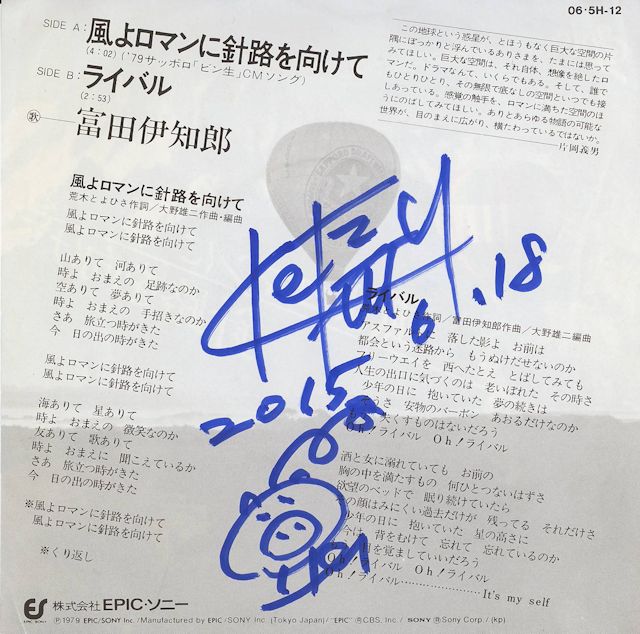 06・5H-12
SIDE A: 風よロマンに針路を向けて
(4:02)('79サッポロ「ビン生」CMソング)
SIDE B: ライバル
(2:53)
歌 富田伊知郎
この地球という惑星が、とほうもなく巨大な空間の片
隅にぽっかりと浮んでいるありさまを、たまには思って
みてほしい。巨大な空間は、それ自体、想像を絶したロ
マンだ。ドラマなんて、いくらでもある。そして、誰で
もひとりひとり、その無限で底なしの空間といつでも接
しあっている。感覚の触手を、ロマンに満ちた空間のほ
うにのばしてみてほしい。ありとあらゆる物語の可能な
世界が、目のまえに広がり、横たわっているではないか。
片岡義男
風よロマンに針路を向けて
荒木とよひさ作詞/大野雄二作曲・編曲
風よロマンに針路を向けて
風よロマンに針路を向けて
山ありて 河ありて
時よ おまえの 足跡なのか
空ありて 夢ありて
時よ おまえの 手招きなのか
さあ 旅立つ時がきた
今 日の出の時がきた
風よロマンに針路を向けて
風よロマンに針路を向けて
海ありて 星ありて
時よ おまえの 微笑なのか
友ありて 歌ありて
時よ おまえに 聞こえているか
さあ 旅立つ時がきた
今 日の出の時がきた
※風よロマンに針路を向けて
風よロマンに針路を向けて
※くり返し
ライバル
よひさ作詞/富田伊知郎作曲/大野雄二編曲
アスファルトに 落した影よ お前は
都会という迷路から もうぬけだせないのか
フリーウエイを 西へたとえ とばしてみても
人生の出口に気づくのは 老いぼれた その時さ
少年の日に 抱いていた 夢の続きは
そうさ 安物のバーボン あおるだけなのか
大くすものはないだろう
Oh!ライバル Oh!ライバル
酒と女に溺れていても お前の
胸の中を満たすもの 何ひとつないはずさ
欲望のベッドで 眠り続けていたら
その顔はみにくい過去だけが 残ってる それだけさ
少年の日に 抱いていた 星の高さに
今は 背をむけて 忘れて 忘れているのか
目を覚ましていいだろう
Oh!ライバル Oh!ライバル
Oh!ライバル……………It's my self
2015 6.18
株式会社EPIC・ソニー
Ⓟ1979 EPIC/SONY Inc./Manufactured by EPIC/SONY Inc. (Tokyo Japan)/"EPIC" ®CBS. Inc./ SONY ®Sony Corp./(kp)